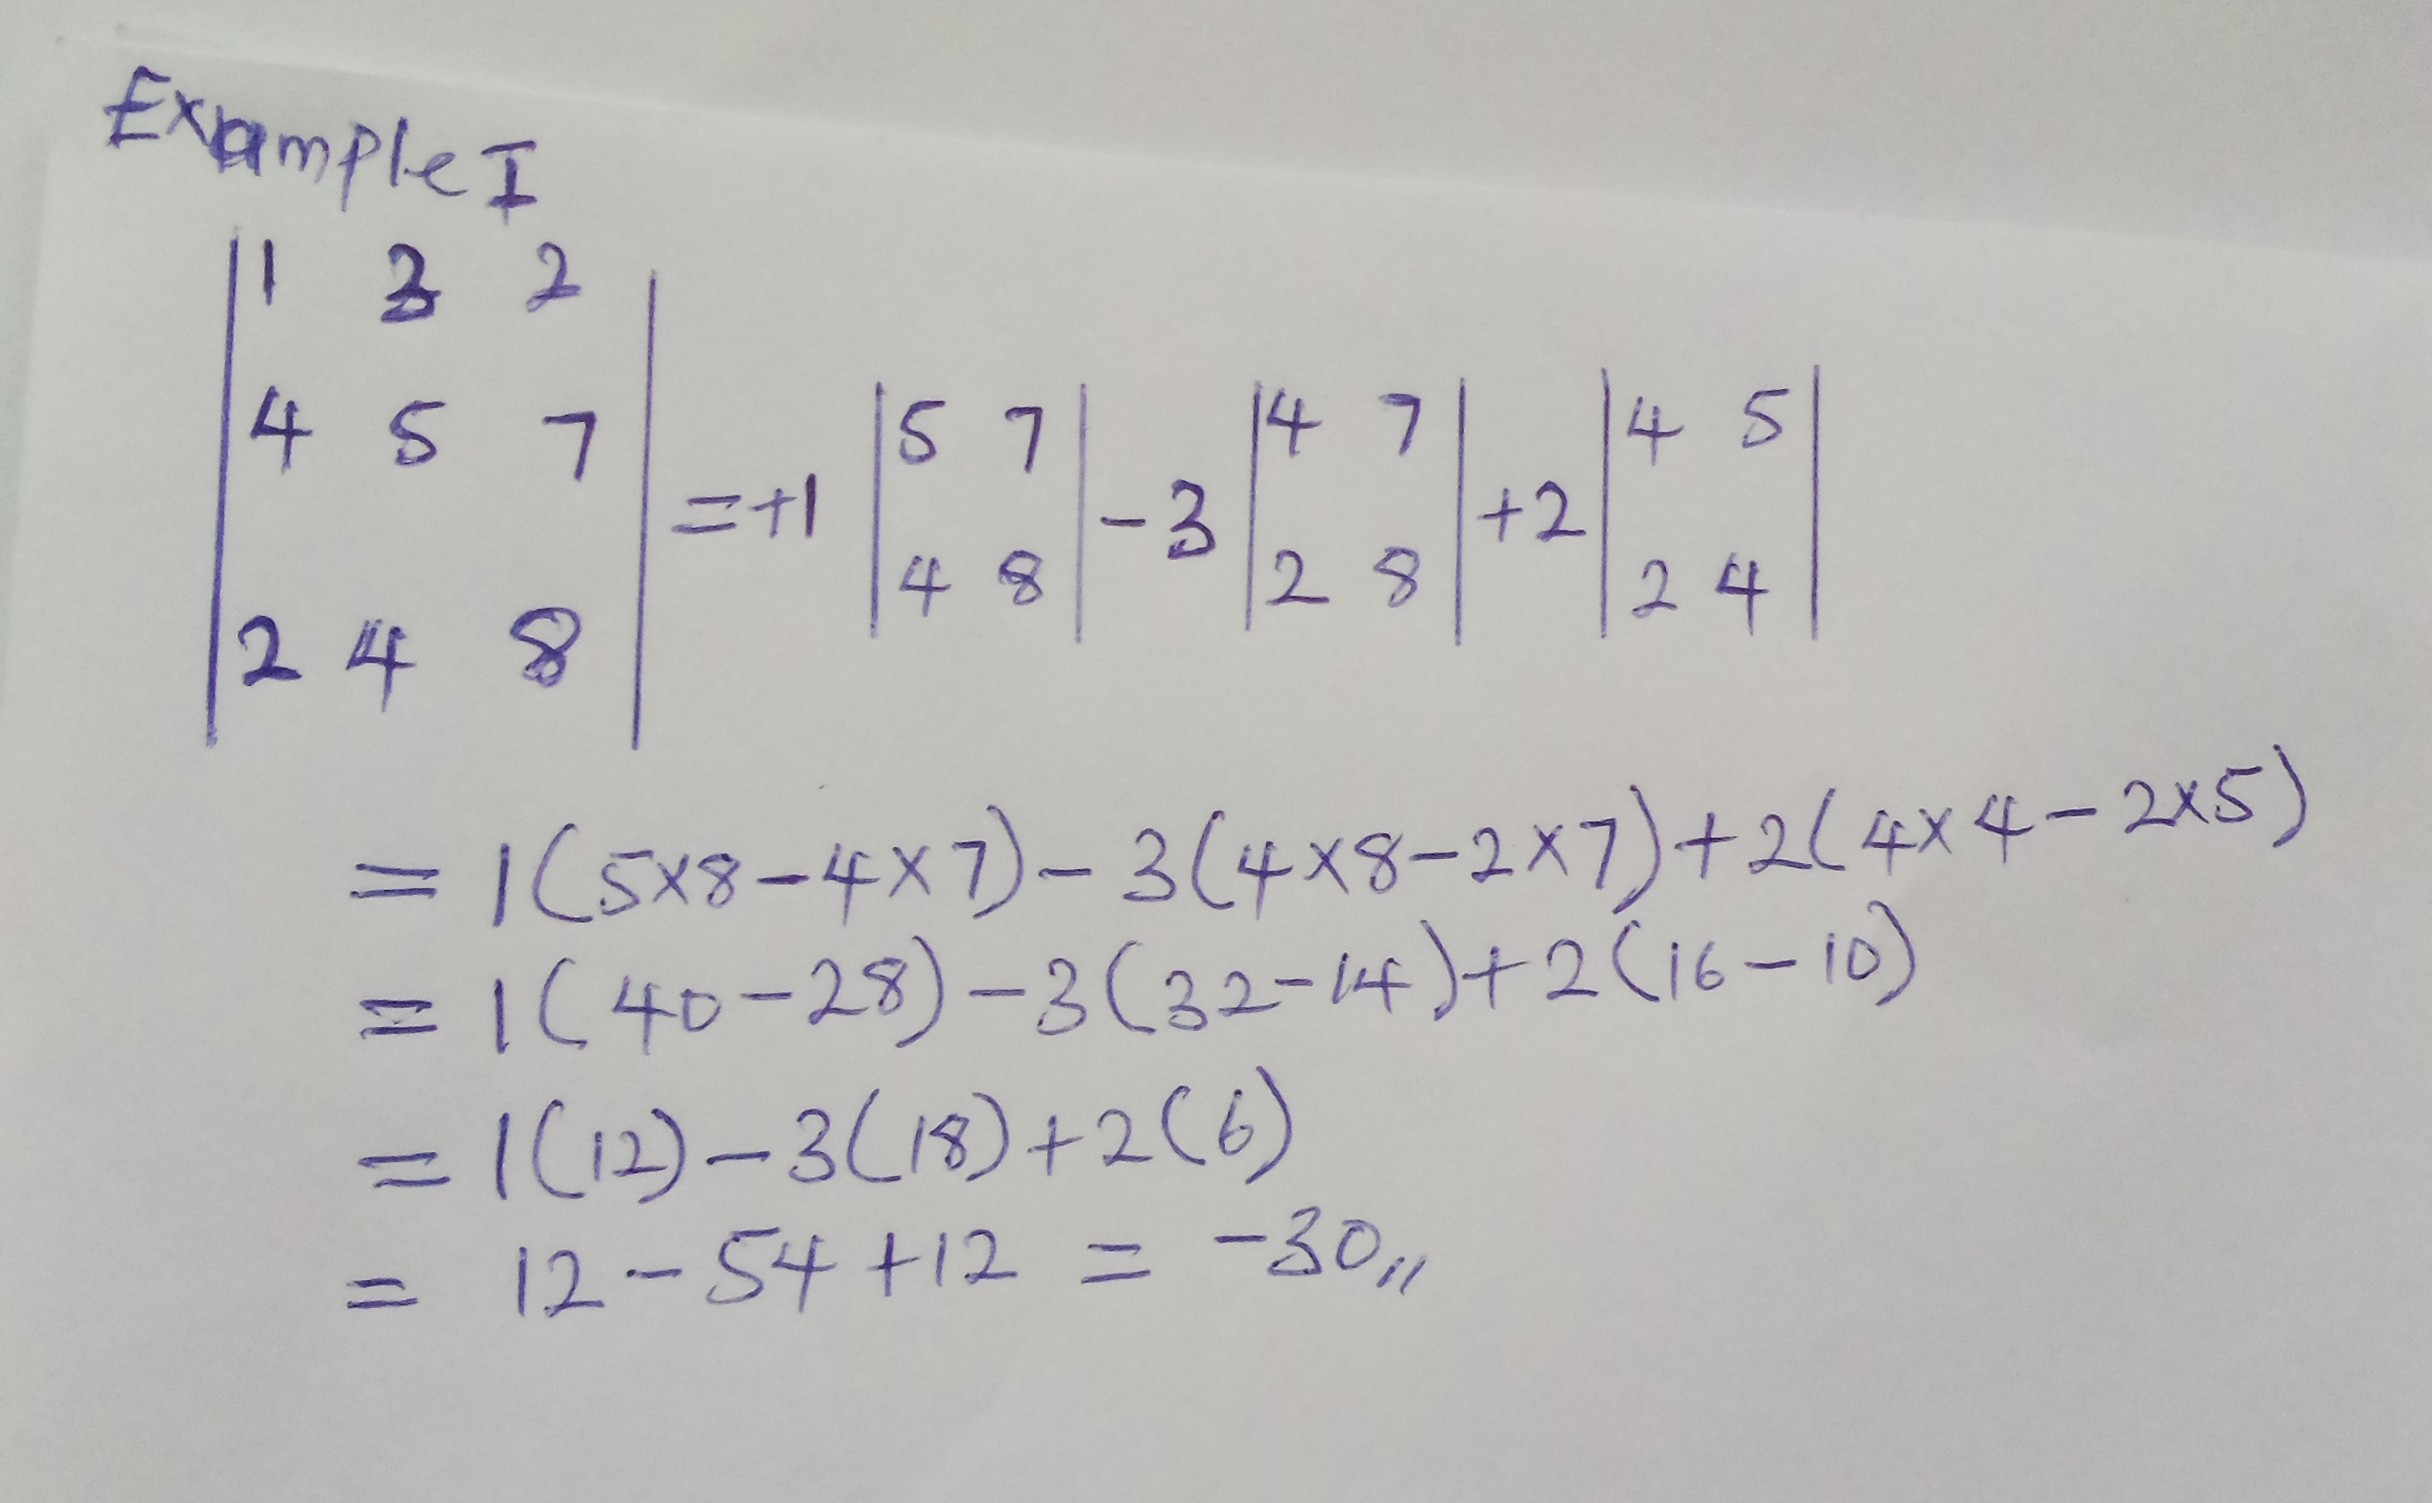 Example I
| 1 3 2 |
| 4 5 7 | = +1 | 5 7 | - 3 | 4 7 | + 2 | 4 5 |
| 2 4 8 | | 4 8 | | 2 8 | | 2 4 |
= 1(5×8-4×7)-3(4×8-2×7)+2(4×4-2×5)
= 1(40-28)-3(32-14)+2(16-10)
= 1(12)-3(18)+2(6)
= 12-54+12 = -30,,